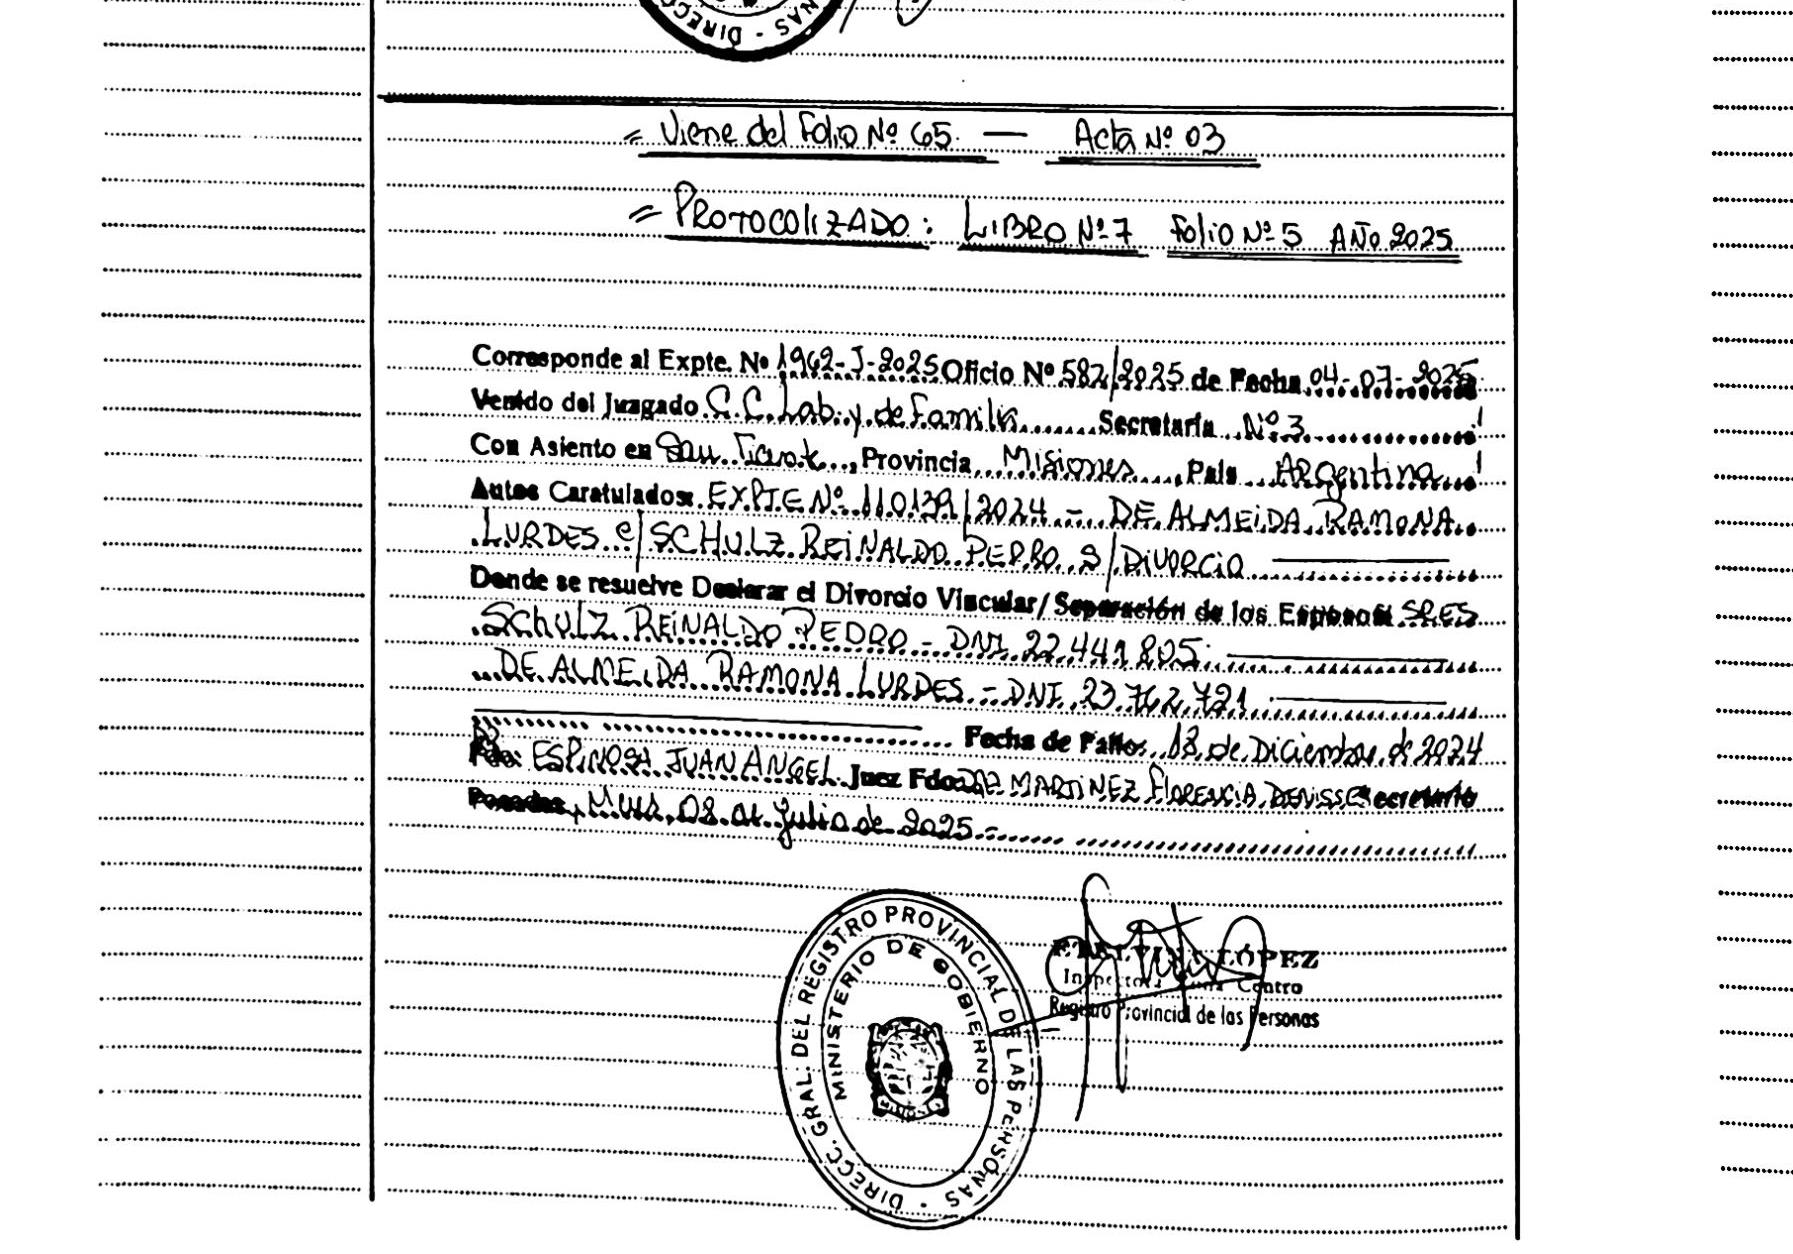 NAS - DIRECC
= Viene del Folio Nº 65 — Acta Nº 03
= PROTOCOLIZADO: LIBRO Nº 7 Folio Nº 5 AÑO 2025
Corresponde al Expte. Nº 1962-J-2025 Oficio Nº 582/2025 de Fecha 04-07-2025
Venido del Juzgado C.C. Lab. y de Familia Secretaría Nº 3
Con Asiento en San , Provincia Misiones País Argentina
Autos Caratulados: EXPTE Nº 110139/2024 - DE ALMEIDA RAMONA
LURDES c/ SCHULZ REINALDO PEDRO S/ DIVORCIO
Donde se resuelve Declarar el Divorcio Vincular/Separación de los Esposos SRES
SCHULZ REINALDO PEDRO - DNI 22.441.805
DE ALMEIDA RAMONA LURDES - DNI 23.762.721
Fecha de Fallo: de Diciembre de 2024
Fdo: ESPINOSA JUAN ANGEL Juez Fdo: MARTINEZ FLORENCIA DENISSE Secretario
Posadas, 08 de Julio de 2025 -
DIRECC. GRAL. DEL REGISTRO PROVINCIAL DE LAS PERSONAS -
MINISTERIO DE GOBIERNO
LÓPEZ
Centro
Registro Provincial de las Personas